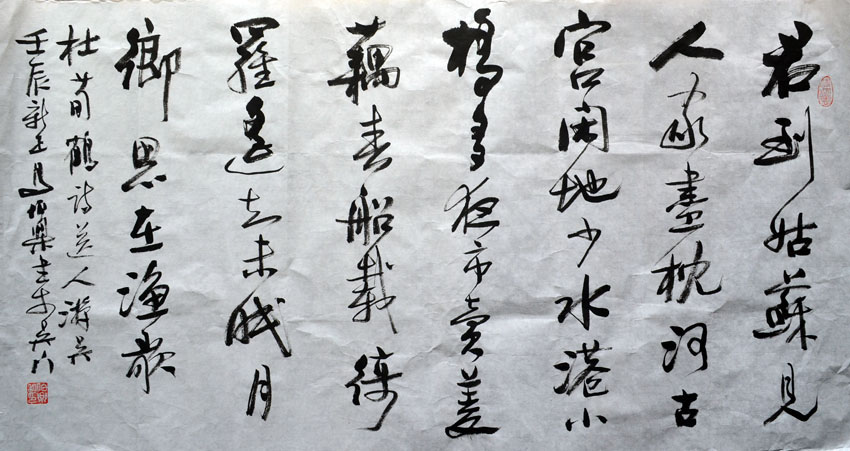 君到姑蘇見
人家盡枕河古
宮閑地少水港小
橋多夜市賣菱
藕春船載綺
羅遙知未眠月
鄉思在漁歌
杜荀鶴詩送人游吳
壬辰新正月馬伯樂書於吳門